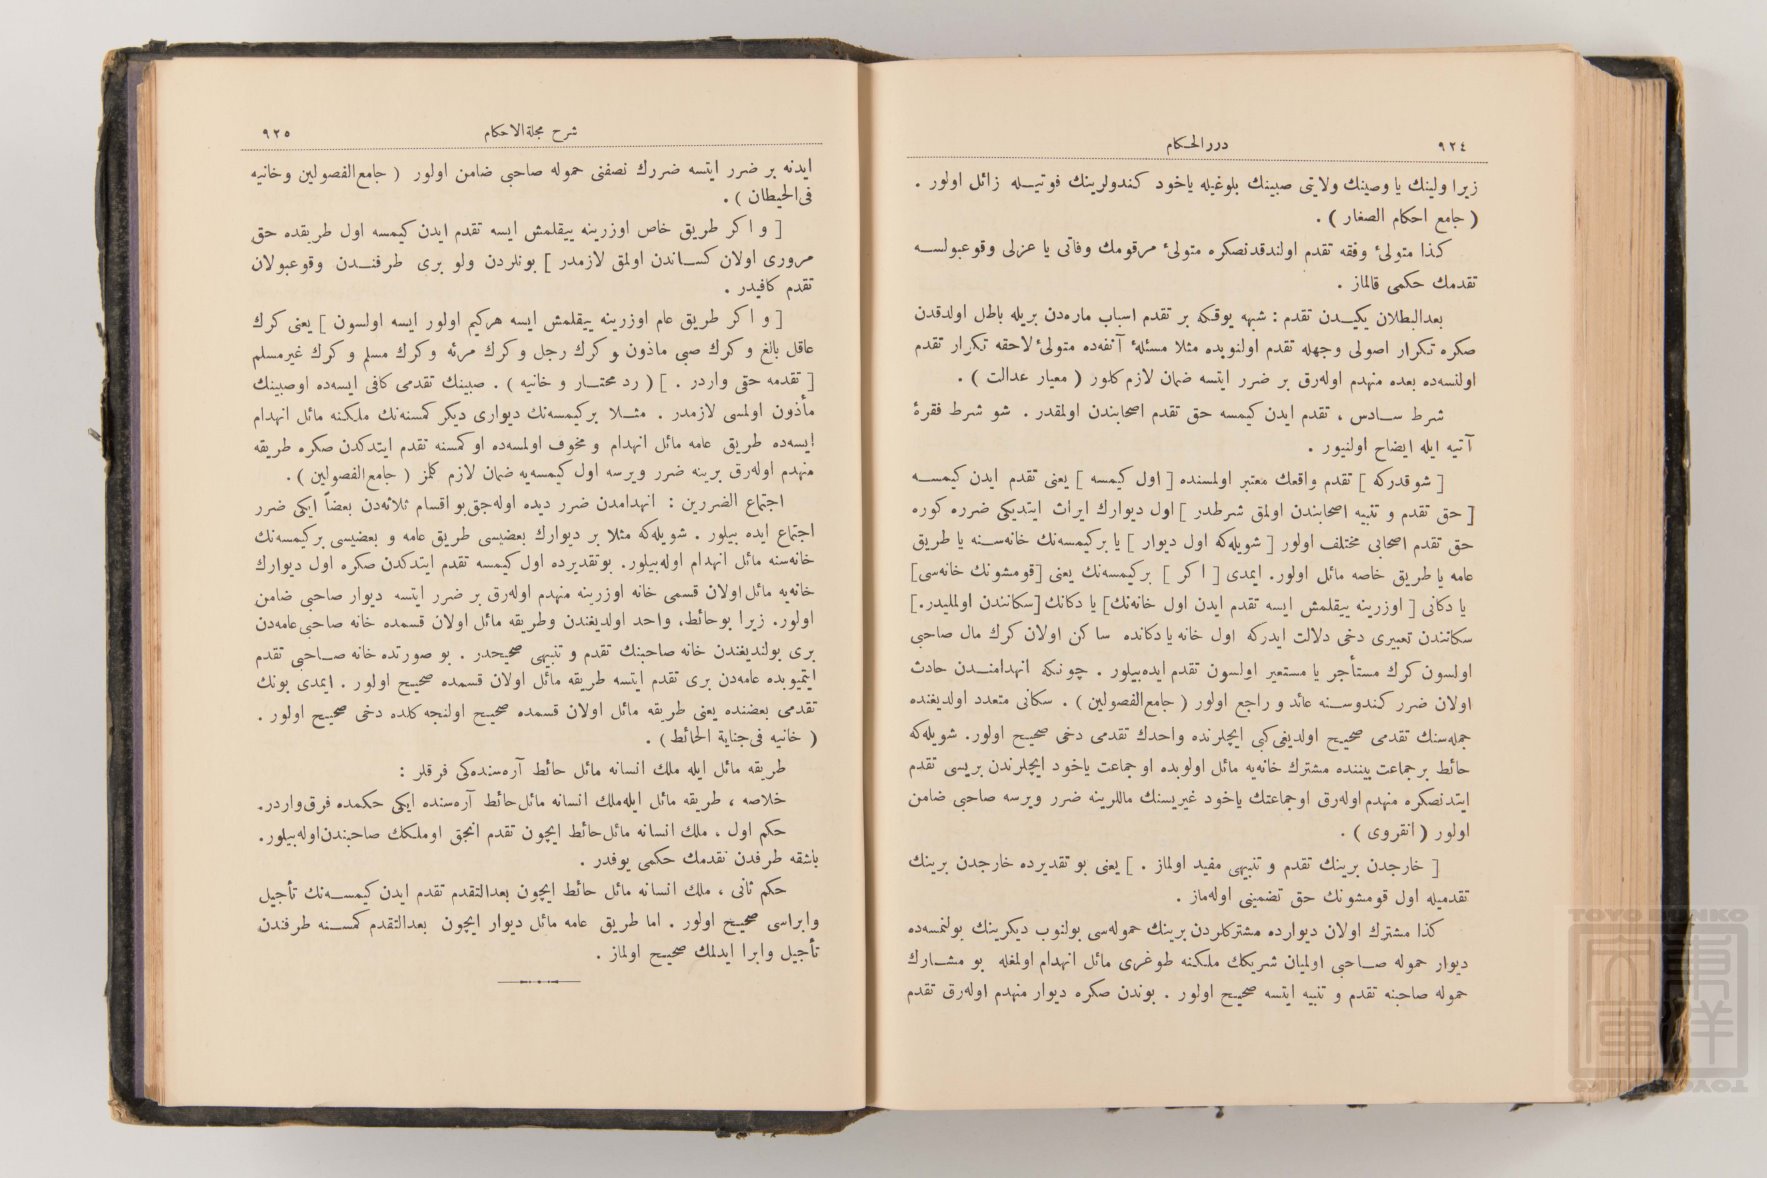 ٩٢٤
دررالحكام
زيرا ولينك يا وصينك ولايتى صبينك بلوغيله ياخود كندولرينك فوتيله زائل اولور .
( جامع احكام الصغار ) .
كذا متولئ وقفه تقدم اولندقدنصكره متولئ مرقومك وفاتى يا عزلى وقوعبولسه
تقدمك حكمى قالماز .
بعدالبطلان يكيدن تقدم : شبهه يوقكه بر تقدم اسباب ماره‌دن بريله باطل اولدقدن
صكره تكرار اصولى وجهله تقدم اولنوبده مثلا مسئلهٔ آنفه‌ده متولئ لاحقه تكرار تقدم
اولنسه‌ده بعده منهدم اوله‌رق بر ضرر ايتسه ضمان لازم كلور ( معيار عدالت ) .
شرط سادس ، تقدم ايدن كيمسه حق تقدم اصحابندن اولمقدر . شو شرط فقرهٔ
آتيه ايله ايضاح اولنيور .
[ شوقدركه ] تقدم واقعك معتبر اولمسنده [ اول كيمسه ] يعنى تقدم ايدن كيمسه
[ حق تقدم و تنبيه اصحابندن اولمق شرطدر ] اول ديوارك ايراث ايتديكى ضرره كوره
حق تقدم اصحابى مختلف اولور [ شويله‌كه اول ديوار ] يا بركيمسه‌نك خانه‌سنه يا طريق
عامه يا طريق خاصه مائل اولور. ايمدى [ اكر ] بركيمسه‌نك يعنى [قومشونك خانه‌سى]
يا دكانى [ اوزرينه ييقلمش ايسه تقدم ايدن اول خانه‌نك] يا دكانك [سكانندن اولمليدر.]
سكانندن تعبيرى دخى دلالت ايدركه اول خانه يا دكانده ساكن اولان كرك مال صاحبى
اولسون كرك مستأجر يا مستعير اولسون تقدم ايده‌بيلور . چونكه انهدامندن حادث
اولان ضرر كندوسنه عائد و راجع اولور ( جامع‌الفصولين ) . سكانى متعدد اولديغنده
جمله‌سنك تقدمى صحيح اولديغى كبى ايچلرنده واحدك تقدمى دخى صحيح اولور. شويله‌كه
حائط بر جماعت بيننده مشترك خانه‌يه مائل اولوبده او جماعت ياخود ايچلرندن بريسى تقدم
ايتدنصكره منهدم اوله‌رق اوجماعتك ياخود غيريسنك ماللرينه ضرر ويرسه صاحبى ضامن
اولور ( انقروى ) .
[ خارجدن برينك تقدم و تنبيهى مفيد اولماز . ] يعنى بو تقديرده خارجدن برينك
تقدميله اول قومشونك حق تضمينى اوله‌ماز .
كذا مشترك اولان ديوارده مشتركلردن برينك حموله‌سى بولنوب ديكرينك بولنمسه‌ده
ديوار حموله صاحبى اولميان شريكك ملكنه طوغرى مائل انهدام اولمغله بو مشارك
حموله صاحبنه تقدم و تنبيه ايتسه صحيح اولور . بوندن صكره ديوار منهدم اوله‌رق تقدم
شرح مجلة‌الاحكام
٩٢٥
ايدنه بر ضرر ايتسه ضررك نصفنى حموله صاحبى ضامن اولور ( جامع‌الفصولين وخانيه
فى‌الحيطان ) .
[ و اكر طريق خاص اوزرينه ييقلمش ايسه تقدم ايدن كيمسه اول طريقده حق
مرورى اولان كساندن اولمق لازمدر ] بونلردن ولو برى طرفندن وقوعبولان
تقدم كافيدر .
[ و اكر طريق عام اوزرينه ييقلمش ايسه هركيم اولور ايسه اولسون ] يعنى كرك
عاقل بالغ و كرك صبى ماذون و كرك رجل و كرك مرئه و كرك مسلم و كرك غيرمسلم
[ تقدمه حقى واردر . ] ( رد محتار و خانيه ) . صبينك تقدمى كافى ايسه‌ده اوصبينك
مأذون اولمسى لازمدر . مثلا بركيمسه‌نك ديوارى ديكر كمسنه‌نك ملكنه مائل انهدام
ايسه‌ده طريق عامه مائل انهدام و مخوف اولمسه‌ده او كمسنه تقدم ايتدكدن صكره طريقه
منهدم اوله‌رق برينه ضرر ويرسه اول كيمسه‌يه ضمان لازم كلمز ( جامع‌الفصولين ) .
اجتماع الضررين : انهدامدن ضرر ديده اوله‌جق بو اقسام ثلاثه‌دن بعضاً ايكى ضرر
اجتماع ايده بيلور . شويله‌كه مثلا بر ديوارك بعضيسى طريق عامه و بعضيسى بركيمسه‌نك
خانه‌سنه مائل انهدام اوله‌بيلور. بوتقديرده اول كيمسه تقدم ايتدكدن صكره اول ديوارك
خانه‌يه مائل اولان قسمى خانه اوزرينه منهدم اوله‌رق بر ضرر ايتسه ديوار صاحبى ضامن
اولور. زيرا بوحائط، واحد اولديغندن وطريقه مائل اولان قسمده خانه صاحبى عامه‌دن
برى بولنديغندن خانه صاحبنك تقدم و تنبيهى صحيحدر . بو صورتده خانه صاحبى تقدم
ايتميوبده عامه‌دن برى تقدم ايتسه طريقه مائل اولان قسمده صحيح اولور . ايمدى بونك
تقدمى بعضنده يعنى طريقه مائل اولان قسمده صحيح اولنجه كلده دخى صحيح اولور .
( خانيه فى‌جناية الحائط ) .
طريقه مائل ايله ملك انسانه مائل حائط آره‌سنده‌كى فرقلر :
خلاصه ، طريقه مائل ايله‌ملك انسانه مائل‌حائط آره‌سنده ايكى حكمده فرق‌واردر.
حكم اول ، ملك انسانه مائل‌حائط ايچون تقدم انجق اوملكك صاحبندن‌اوله‌بيلور.
باشقه طرفدن تقدمك حكمى يوقدر .
حكم ثانى ، ملك انسانه مائل حائط ايچون بعدالتقدم تقدم ايدن كيمسه‌نك تأجيل
وابراسى صحيح اولور . اما طريق عامه مائل ديوار ايچون بعدالتقدم كمسنه طرفندن
تأجيل وابرا ايدلمك صحيح اولماز .
TOYO BUNKO
東洋文庫
TOYO BUNKO